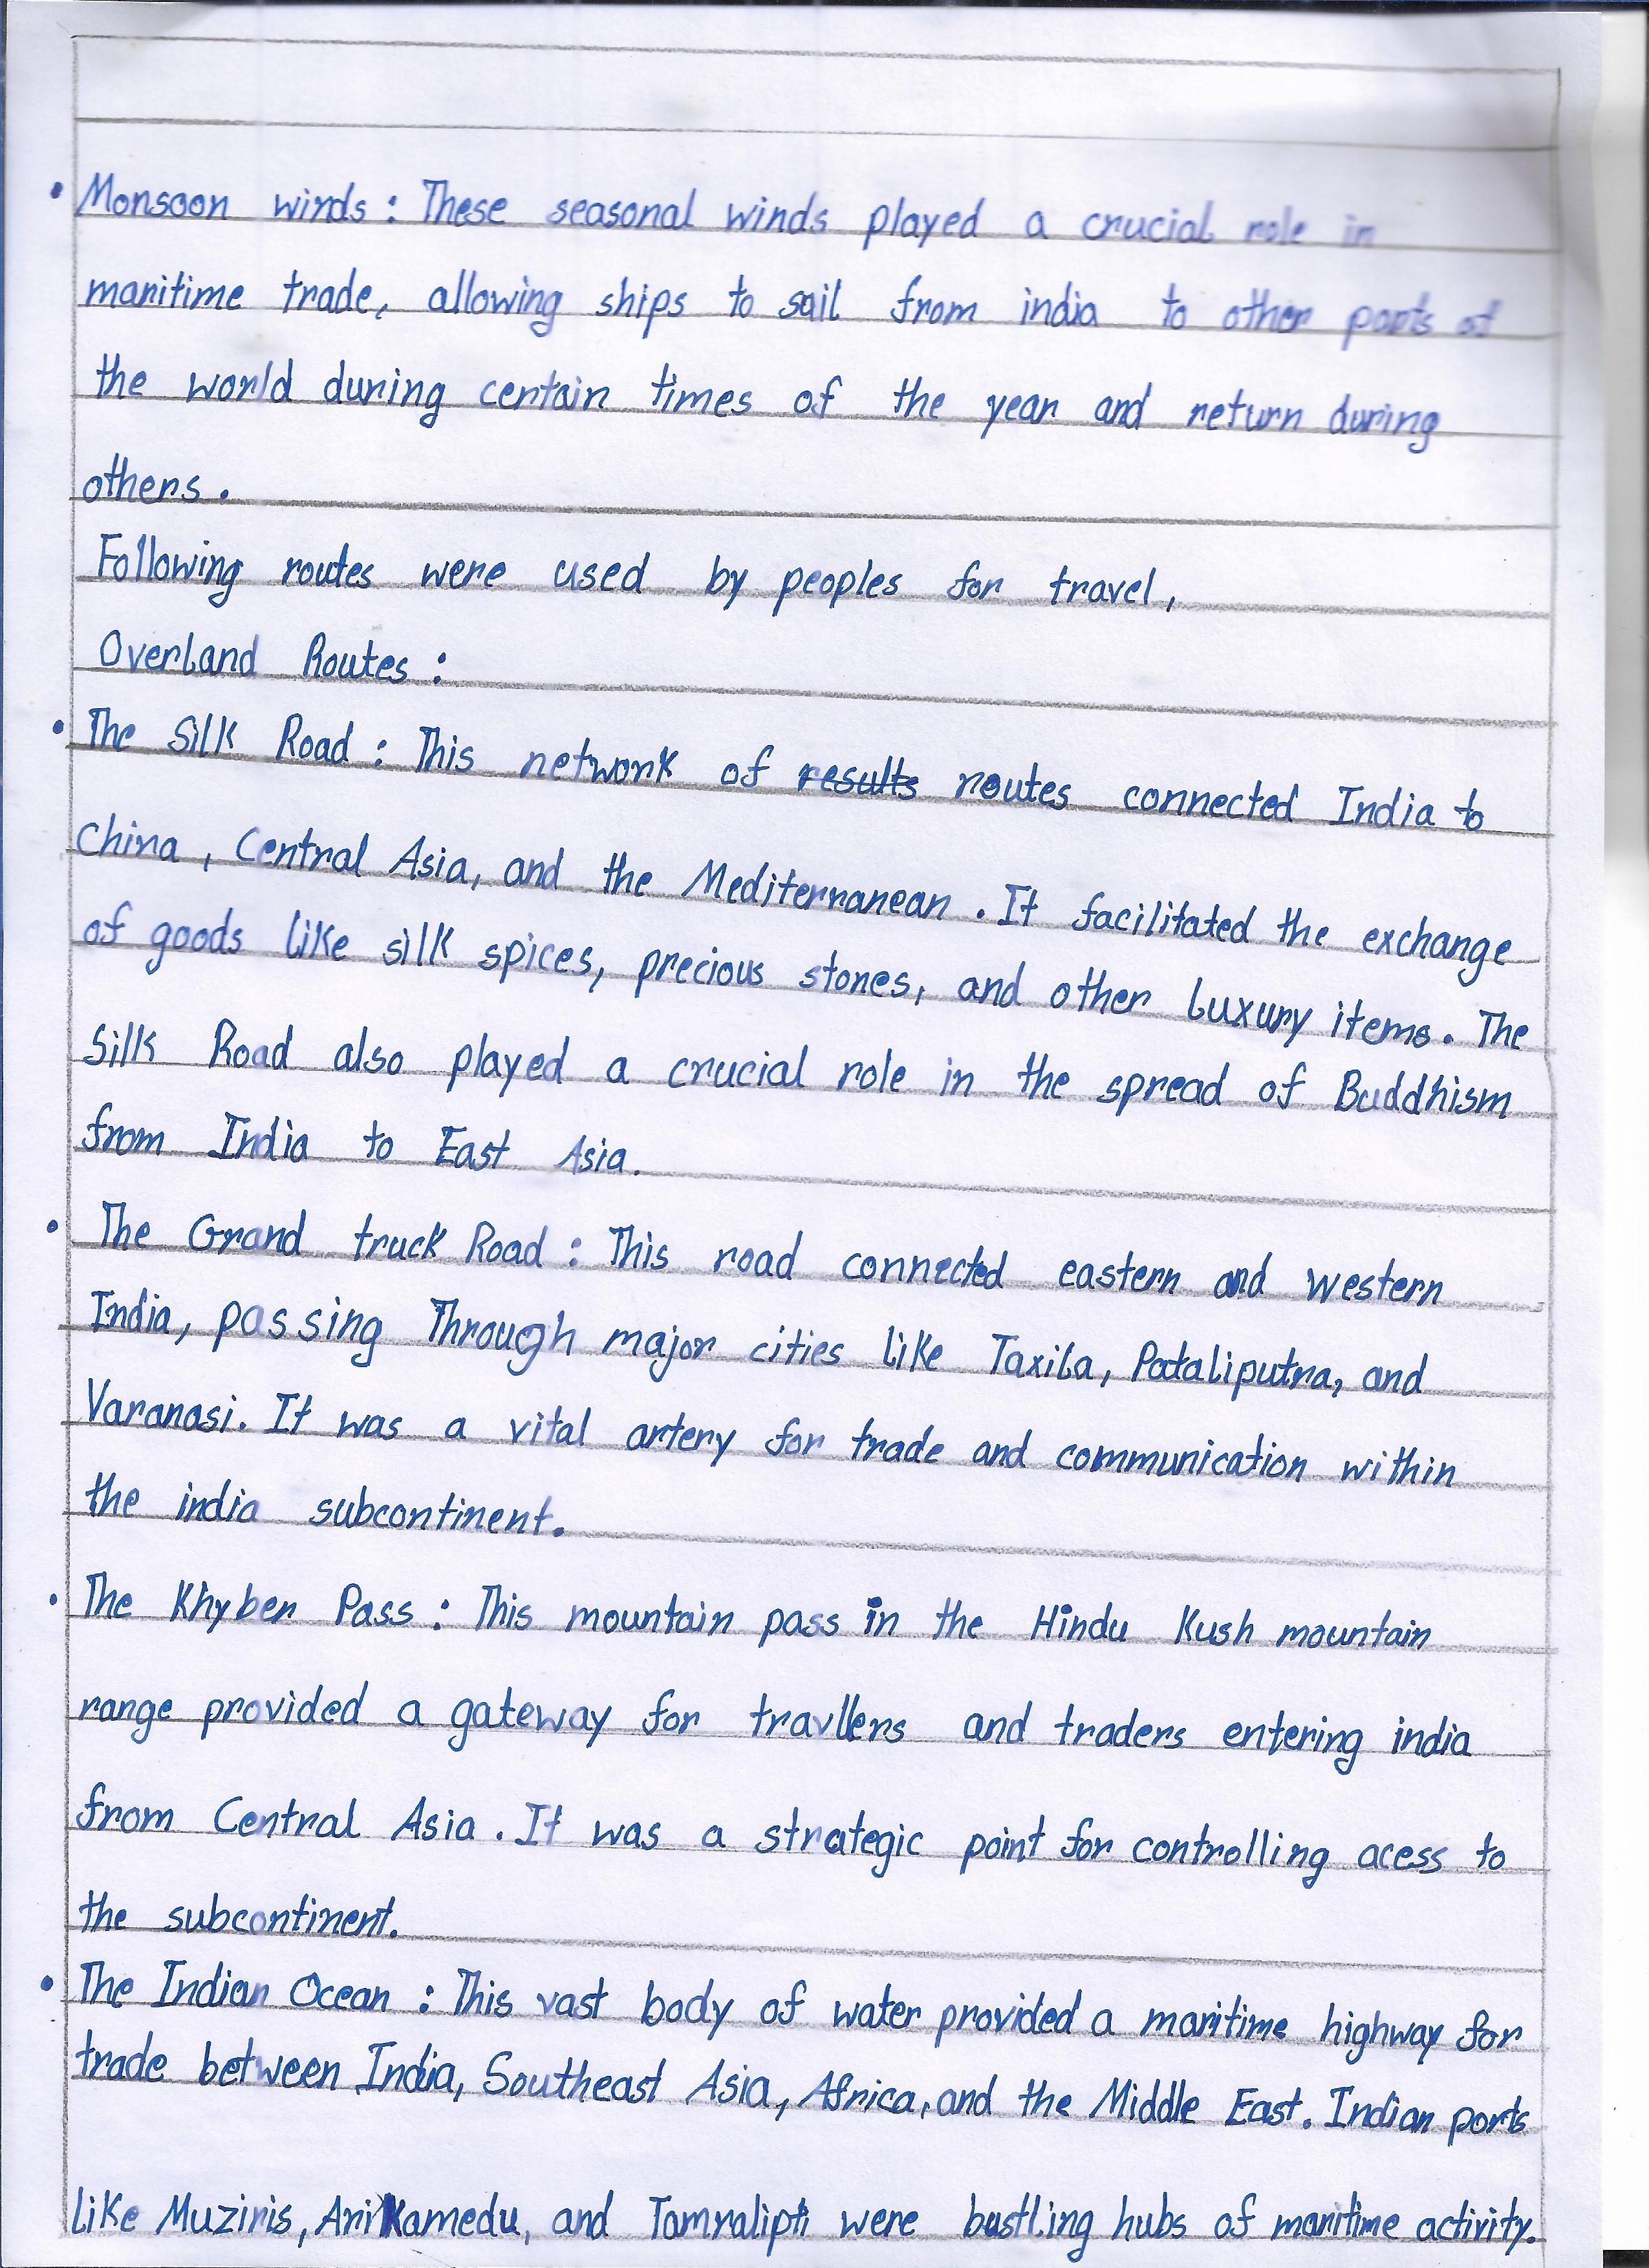 • Monsoon winds : These seasonal winds played a crucial role in
maritime trade, allowing ships to sail from india to other parts of
the world during certain times of the year and return during
others.
Following routes were used by peoples for travel,
Overland Routes :
• The Silk Road : This network of results routes connected India to
China, Central Asia, and the Mediterranean. It facilitated the exchange
of goods like silk spices, precious stones, and other luxury items. The
Silk Road also played a crucial role in the spread of Buddhism
from India to East Asia.
• The Grand truck Road : This road connected eastern and western
India, passing Through major cities like Taxila, Pataliputra, and
Varanasi. It was a vital artery for trade and communication within
the india subcontinent.
• The Khyber Pass : This mountain pass in the Hindu Kush mountain
range provided a gateway for travllers and traders entering india
from Central Asia. It was a strategic point for controlling acess to
the subcontinent.
• The Indian Ocean : This vast body of water provided a maritime highway for
trade between India, Southeast Asia, Africa, and the Middle East. Indian ports
like Muziris, Arikamedu, and Tamralipti were bustling hubs of maritime activity.